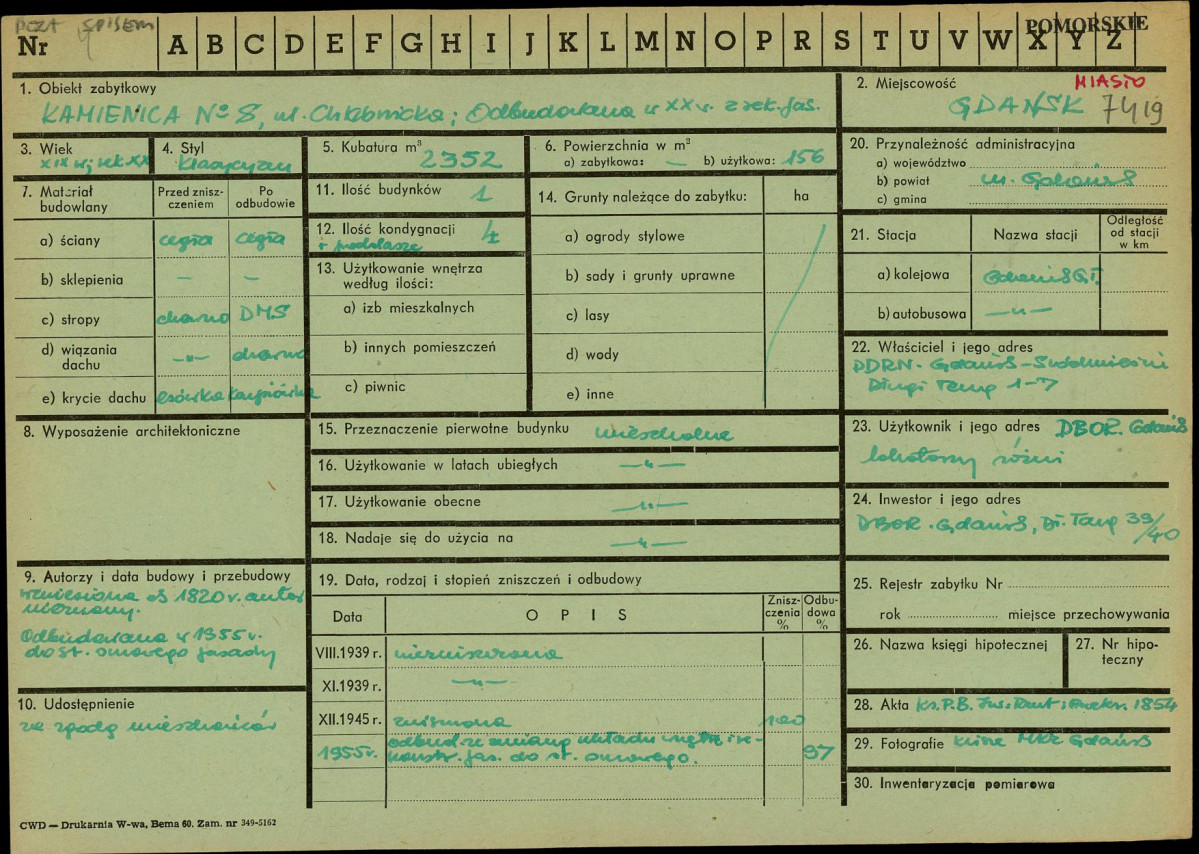 POZA SPISEM
POMORSKIE
Nr A B C D E F G H I J K L M N O P R S T U V W X Y Z
1. Obiekt zabytkowy
KAMIENICA No 8, ul. Chlebnicka; Odbudowana w XX w. z rek. fas.
2. Miejscowość MIASTO
GDAŃSK 7419
3. Wiek
XIX w; rek XX
4. Styl
Klasycyzm
5. Kubatura m³ 2352
6. Powierzchnia w m²
a) zabytkowa: — b) użytkowa: 156
7. Materiał budowlany
Przed zniszczeniem
Po odbudowie
a) ściany cegła cegła
b) sklepienia — —
c) stropy drewno DMS
d) wiązania dachu —„— drewno
e) krycie dachu esówka karpiówka
8. Wyposażenie architektoniczne
9. Autorzy i data budowy i przebudowy
wzniesiona ok 1820 r. autor
nieznany.
Odbudowana w 1955 r.
do st. surowego fasady
10. Udostępnienie
za zgodą mieszkańców
11. Ilość budynków 1
12. Ilość kondygnacji 4
+ poddasze
13. Użytkowanie wnętrza
według ilości:
a) izb mieszkalnych
b) innych pomieszczeń
c) piwnic
14. Grunty należące do zabytku: ha
a) ogrody stylowe
b) sady i grunty uprawne
c) lasy
d) wody
e) inne
15. Przeznaczenie pierwotne budynku mieszkalne
16. Użytkowanie w latach ubiegłych —„—
17. Użytkowanie obecne —„—
18. Nadaje się do użycia na —„—
19. Data, rodzaj i stopień zniszczeń i odbudowy
Data OPIS Zniszczenia % Odbudowa %
VIII.1939 r. niezniszczona
XI.1939 r. —„—
XII.1945 r. zniszczona 100
1955 r. odbud. ze zmianą układu wnętrz i re-
konstr. fas. do st. surowego. 97
20. Przynależność administracyjna
a) województwo
b) powiat m. Gdańsk
c) gmina
21. Stacja Nazwa stacji Odległość od stacji w km
a) kolejowa Gdańsk Gł.
b) autobusowa —„—
22. Właściciel i jego adres
DDRN. Gdańsk-Śródmieście
Długi Targ 1-7
23. Użytkownik i jego adres DBOR. Gdańsk
lokatorzy różni
24. Inwestor i jego adres
DBOR. Gdańsk, Dł. Targ 39/40
25. Rejestr zabytku Nr
rok miejsce przechowywania
26. Nazwa księgi hipotecznej
27. Nr hipoteczny
28. Akta Ks. P.B. 1854
29. Fotografie klisze MKZ Gdańsk
30. Inwentaryzacja pomiarowa
CWD — Drukarnia W-wa, Bema 60. Zam. nr 349-5162